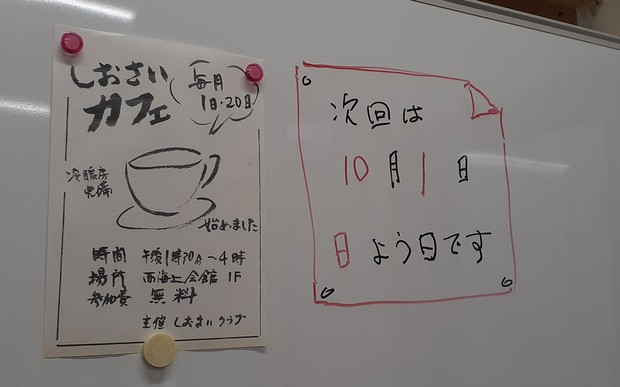 しおさい
カフェ
毎月
1日・20日
冷暖房
完備
始めました
時間 午後1時30分～4時
場所 西海上会館 1F
参加費 無料
主催 しおさいクラブ
次回は
10月1日
日よう日です